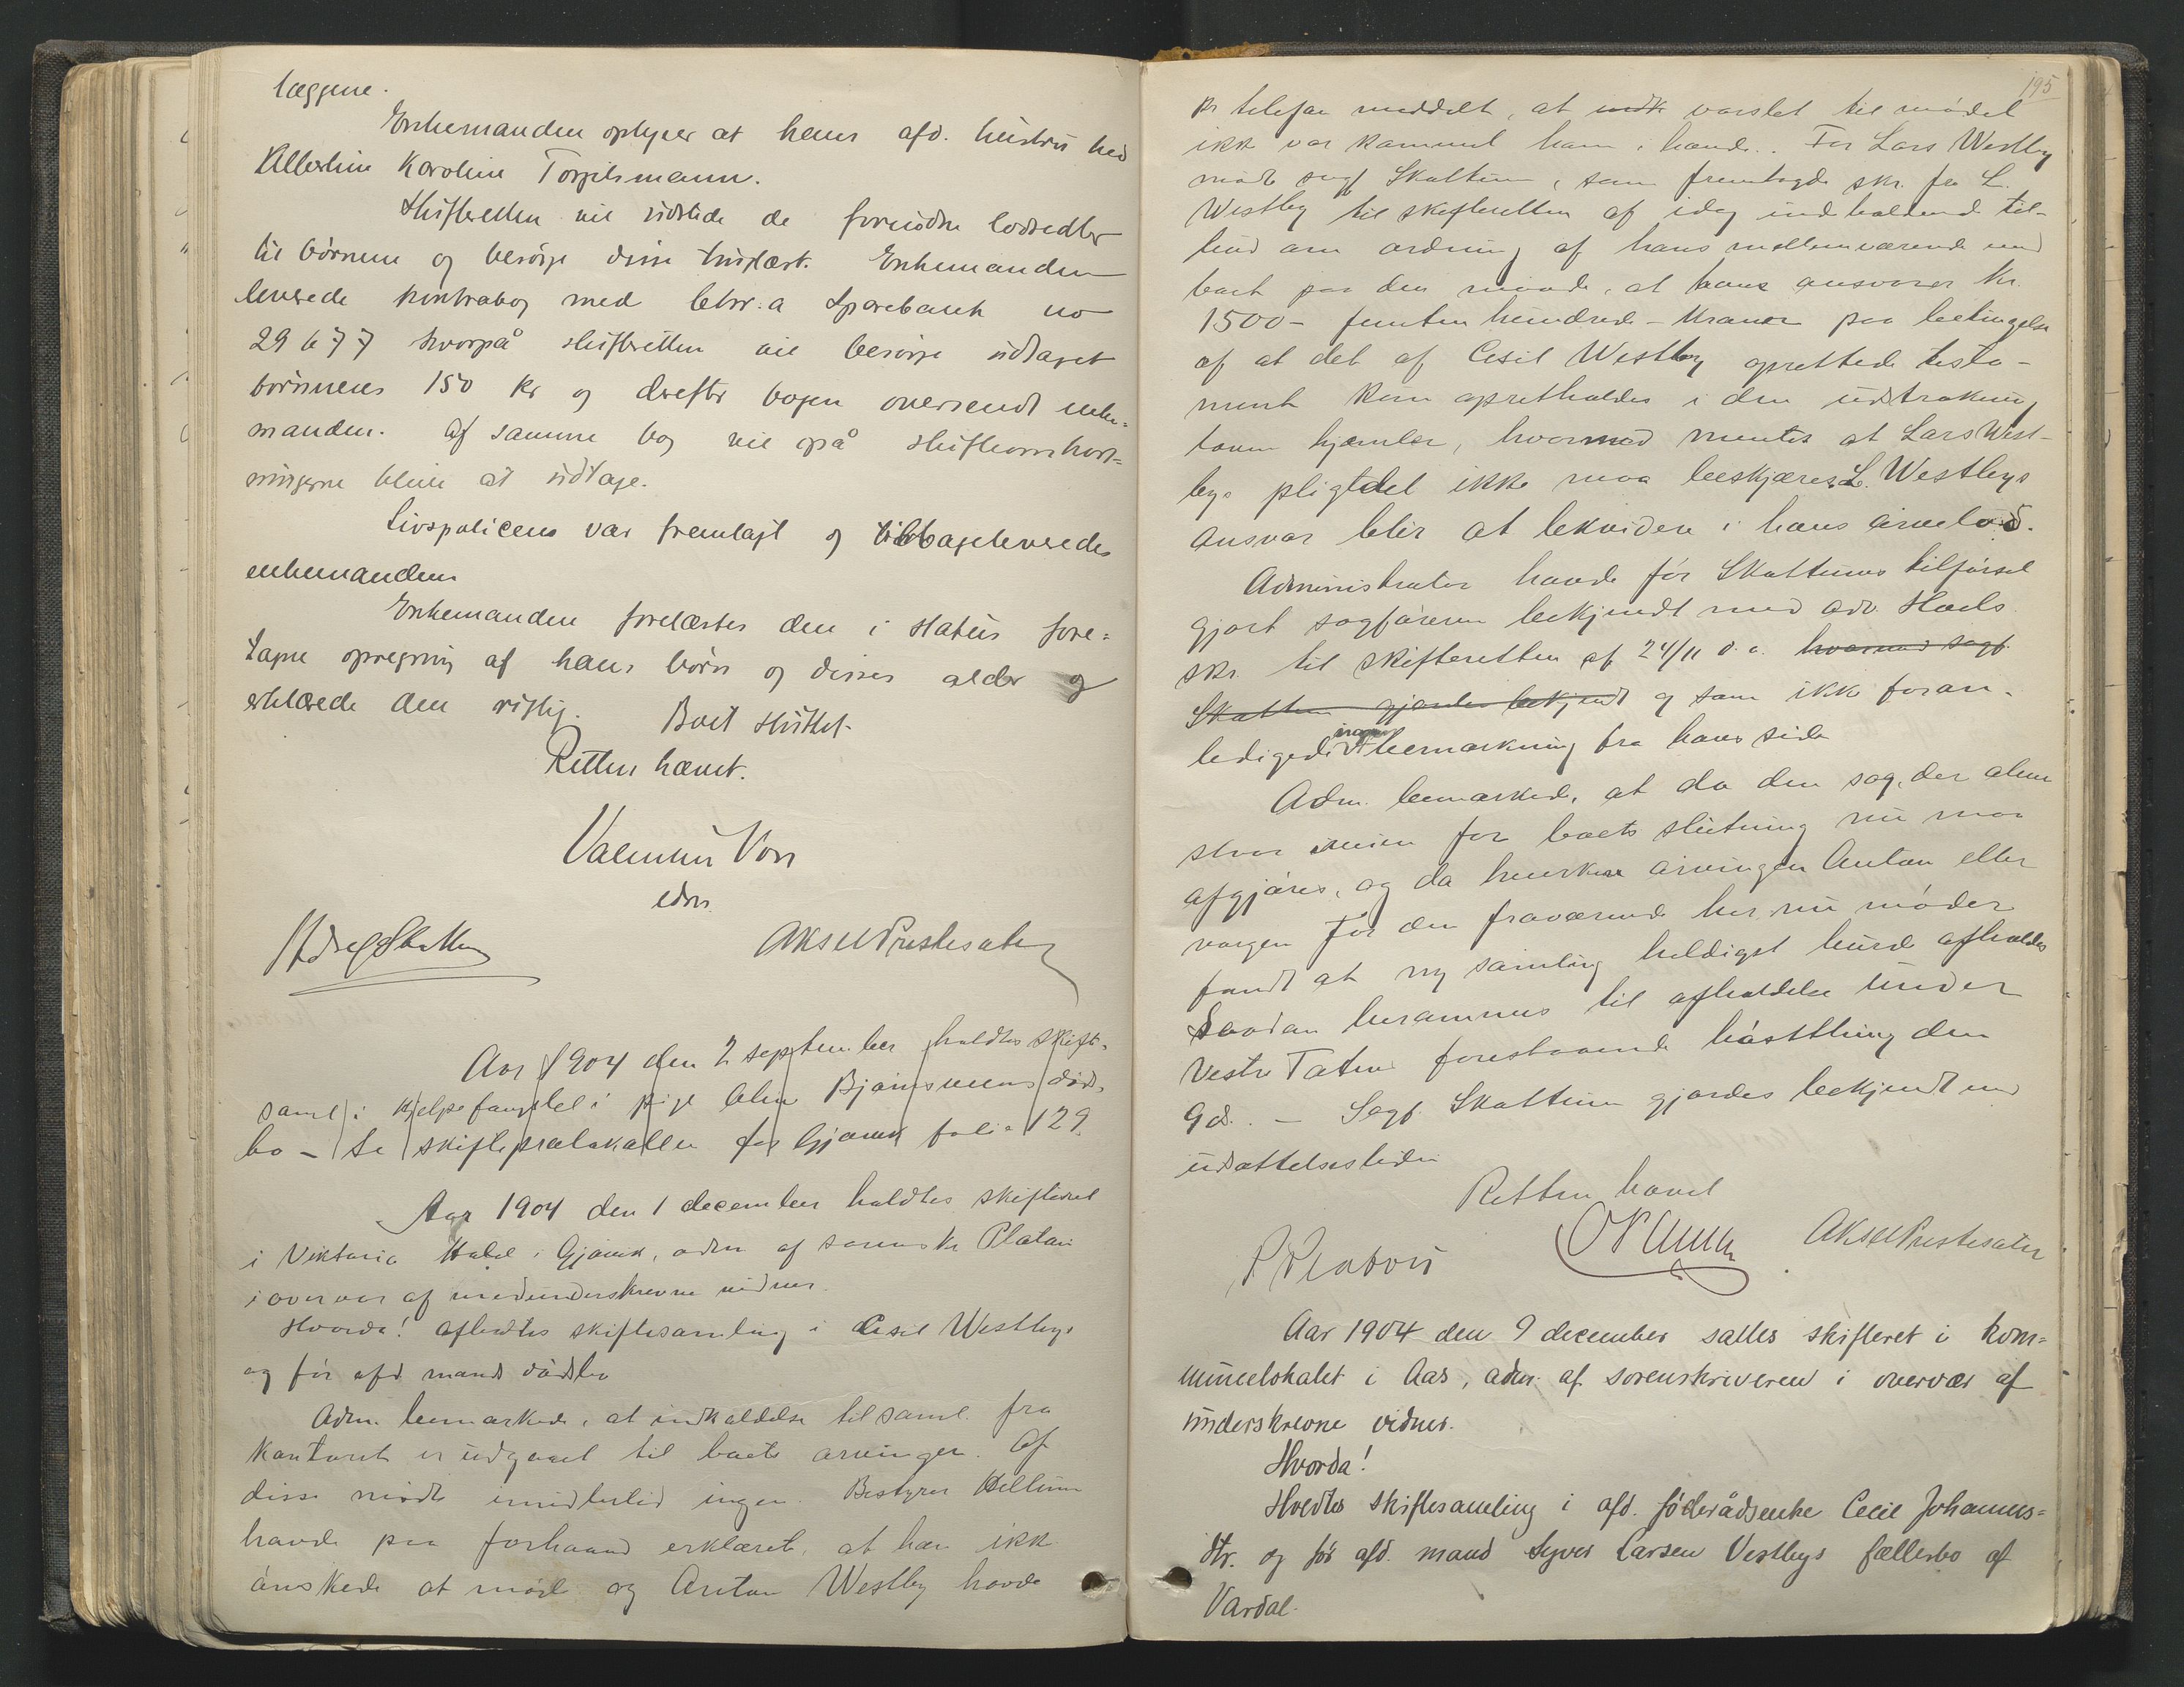 læggene.
Enkemanden oplyser at hans afd. hustru hed
Albertine Karoline Torgilsmann.
Skifteretten vil udstede de fornødne lodsedler
til børnene og besørge disse tinglæst. Enkemanden
leverede kontrabog med betr.a Sparebank no
29677 hvorpå skifteretten vil besørge udtaget
børnenes 150 kr og derefter bogen oversendt enke=
manden. Af samme bog vil også skifteomkost=
ningerne blive at udtage.
Livspolicens var fremlagt og tilbageleveredes
enkemanden
Enkemanden forelæstes den i status fore=
tagne opregning af hans børn og disses alder og
erklærede den rigtig. Boet sluttet.
Retten hævet.
Valentin Voss
edsv.
Aksel Prestesæter
Aar 1904 den 2 september holdtes skifte-
saml i Hjelpefængslet i pige Oline Bjørnsveens døds-
bo - Se skifteprotokollen for Gjøvik folio 129.
Aar 1904 den 1 december holdtes skifteret
i Viktoria Hotel i Gjøvik, adm af sorenskr Platou
i overvær af medunderskrevne vidner.
Hvorda! afholdtes skiftesamling i Cesil Westbys
og før afd. mands dødsbo
Adm. bemærkede, at indkaldelse til saml. fra
kontoret er udgaaet til boets arvinger. Af
disse mødte imidlertid ingen. Bestyrer Hellum
havde paa forhaand erklæret, at han ikke
ønskede at møde og Anton Westby havde
195
pr telefon meddelt, at indk varslet til mødet
ikke var kommet ham i hænde. For Lars Westby
mødte sagf Skattum, som fremlagde skr. fra L.
Westby til skifteretten af idag indholdende til-
bud om ordning af hans mellemværende med
boet paa den maade, at hans ansvarer kr.
1500 - femten hundrede - kroner paa betingelse
af at det af Cesil Westby oprettede testa-
ment kun opretholdes i den udstrækning
loven hjemler, hvormed mentes at Lars West-
bys pligtdel ikke maa beskjæres. L. Westbys
ansvar blir at likvidere i hans arvelod.
Administrator havde før Skattums tilførsel
gjort sagføreren bekjendt med adv. Hoels
skr. til skifteretten af 24/11 d.a. hvormed sagf.
Skattum gjordes bekjendt og som ikke foran-
ledigede ingen bemærkning fra hans side
Adm. bemærkede, at da den sag, der alene
staar igjen for boets slutning nu maa
afgjøres, og da hverken arvingen Anton eller
vergen for den fraværende her nu møder
fandt at ny samling heldigst burde afholdes
Saadan berammes til afholdelse under
Vestre Totens forestaaende høstthing den
9d. - Sagf. Skattum gjordes bekjendt med
udsættelsestiden
Retten hævet
Platou
Aksel Prestesæter
Aar 1904 den 9 december sattes skifteret i kom=
munelokalet i Aas, adm. af sorenskriveren i overvær af
underskrevne vidner.
Hvorda!
Holdtes skiftesamling i afd. føderådsenke Cecie Johannes=
dtr. og før afd. mand Syver Larsen Vestbys fællesbo af
Vardal.